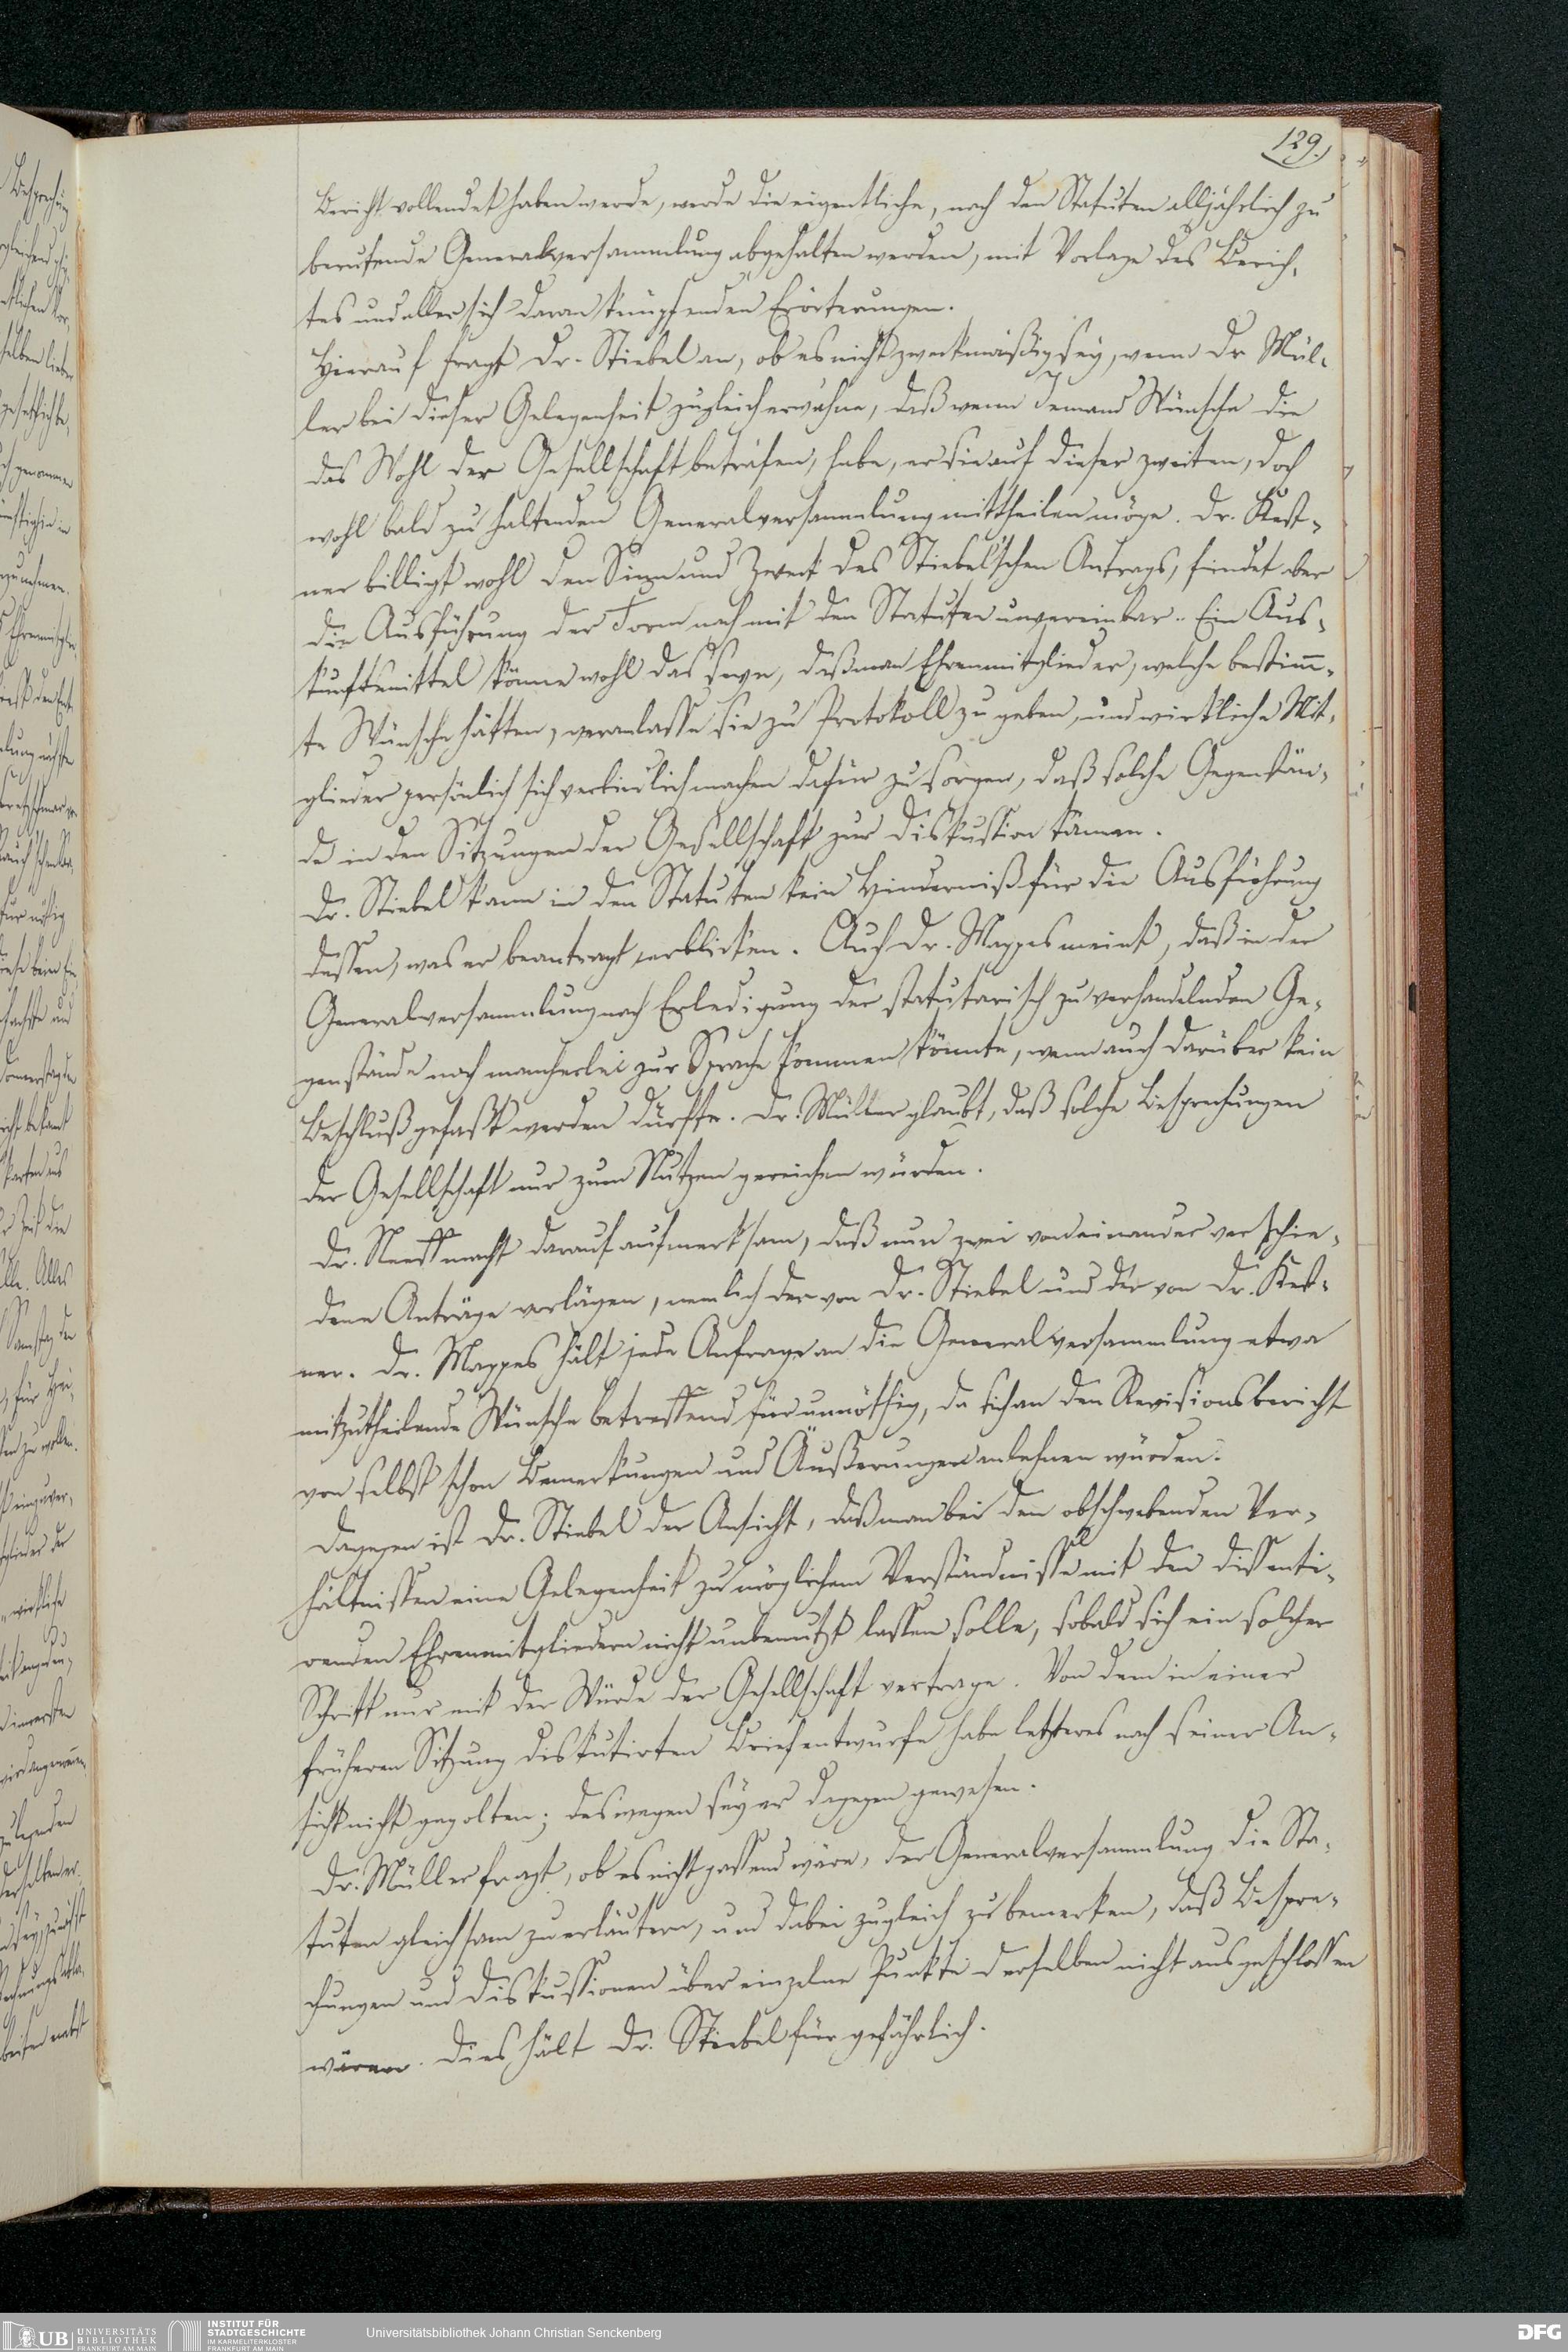 129.
Bericht vollendet haben werde, werde die eigentliche, nach den Statuten alljährlich zu
berufende Generalversammlung abgehalten werden, mit Vorlage des Berich-
tes und aller sich daran knüpfenden Erörterungen.
Hierauf fragt Dr. Stiebel an, ob es nicht zweckmäßig sey, wenn Dr Mül-
ler bei dieser Gelegenheit zugleich erwähne, daß wenn Jemand Wünsche die
das Wohl der Gesellschaft beträfen, habe, er sie auf dieser zweiten, doch
wohl bald zu haltenden Generalversammlung mittheilen möge. Dr. Kest-
ner billigt wohl den Sinn und Zweck des Stiebel'schen Antrags, findet aber
die Ausführung der Form nach mit den Statuten unvereinbar. Ein Aus-
kunftsmittel könne wohl das seyn, daß man Ehrenmitglieder, welche bestim̄-
te Wünsche hätten, veranlasse sie zu Protokoll zu geben, und wirkliche Mit-
glieder persönlich sich verbindlich machen dafür zu sorgen, daß solche Gegenstän-
de in den Sitzungen der Gesellschaft zur Diskussion kämen.
Dr. Stiebel kann in den Statuten kein Hinderniß für die Ausführung
dessen, was er beantragt, erblicken. Auch Dr. Mappes meint, daß in der
Generalversammlung nach Erledigung der statutarisch zu verhandelnden Ge-
genstände noch mancherlei zur Sprache kommen könnte, wenn auch darüber kein
Beschluß gefaßt werden dürfte. Dr. Müller glaubt, daß solche Besprechungen
der Gesellschaft nur zum Nutzen gereichen würden.
Dr. Neeff macht darauf aufmerksam, daß nun zwei von einander verschie-
dene Anträge vorlägen, nemlich der von Dr. Stiebel und der von Dr. Kest-
ner. Dr. Mappes hält jede Anfrage an die Generalversammlung etwa
mitzutheilende Wünsche betreffend für unnöthig, da sich an den Revisionsbericht
von selbst schon Bemerkungen und Äußerungen anlehnen würden.
Dagegen ist Dr. Stiebel der Ansicht, daß man bei den obschwebenden Ver-
hältnissen eine Gelegenheit zu möglichem Verständnisse mit den dissenti-
renden Ehrenmitgliedern nicht unbenutzt lassen solle, sobald sich ein solcher
Schritt nur mit der Würde der Gesellschaft vertrage. Von dem in einer
früheren Sitzung diskutirten Briefentwurfe habe letzteres nach seiner An-
sicht nicht gegolten; deswegen sey er dagegen gewesen.
Dr. Müller fragt, ob es nicht passend wäre, der Generalversammlung die Sta-
tuten gleichsam zu erläutern, und dabei zugleich zu bemerken, daß Bespre-
chungen und Diskussionen über einzelne Punkte derselben nicht ausgeschlossen
wären. Dies hält Dr. Stiebel für gefährlich.
UB UNIVERSITÄTS
BIBLIOTHEK
FRANKFURT AM MAIN
INSTITUT FÜR
STADTGESCHICHTE
IM KARMELITERKLOSTER
FRANKFURT AM MAIN
Universitätsbibliothek Johann Christian Senckenberg
DFG